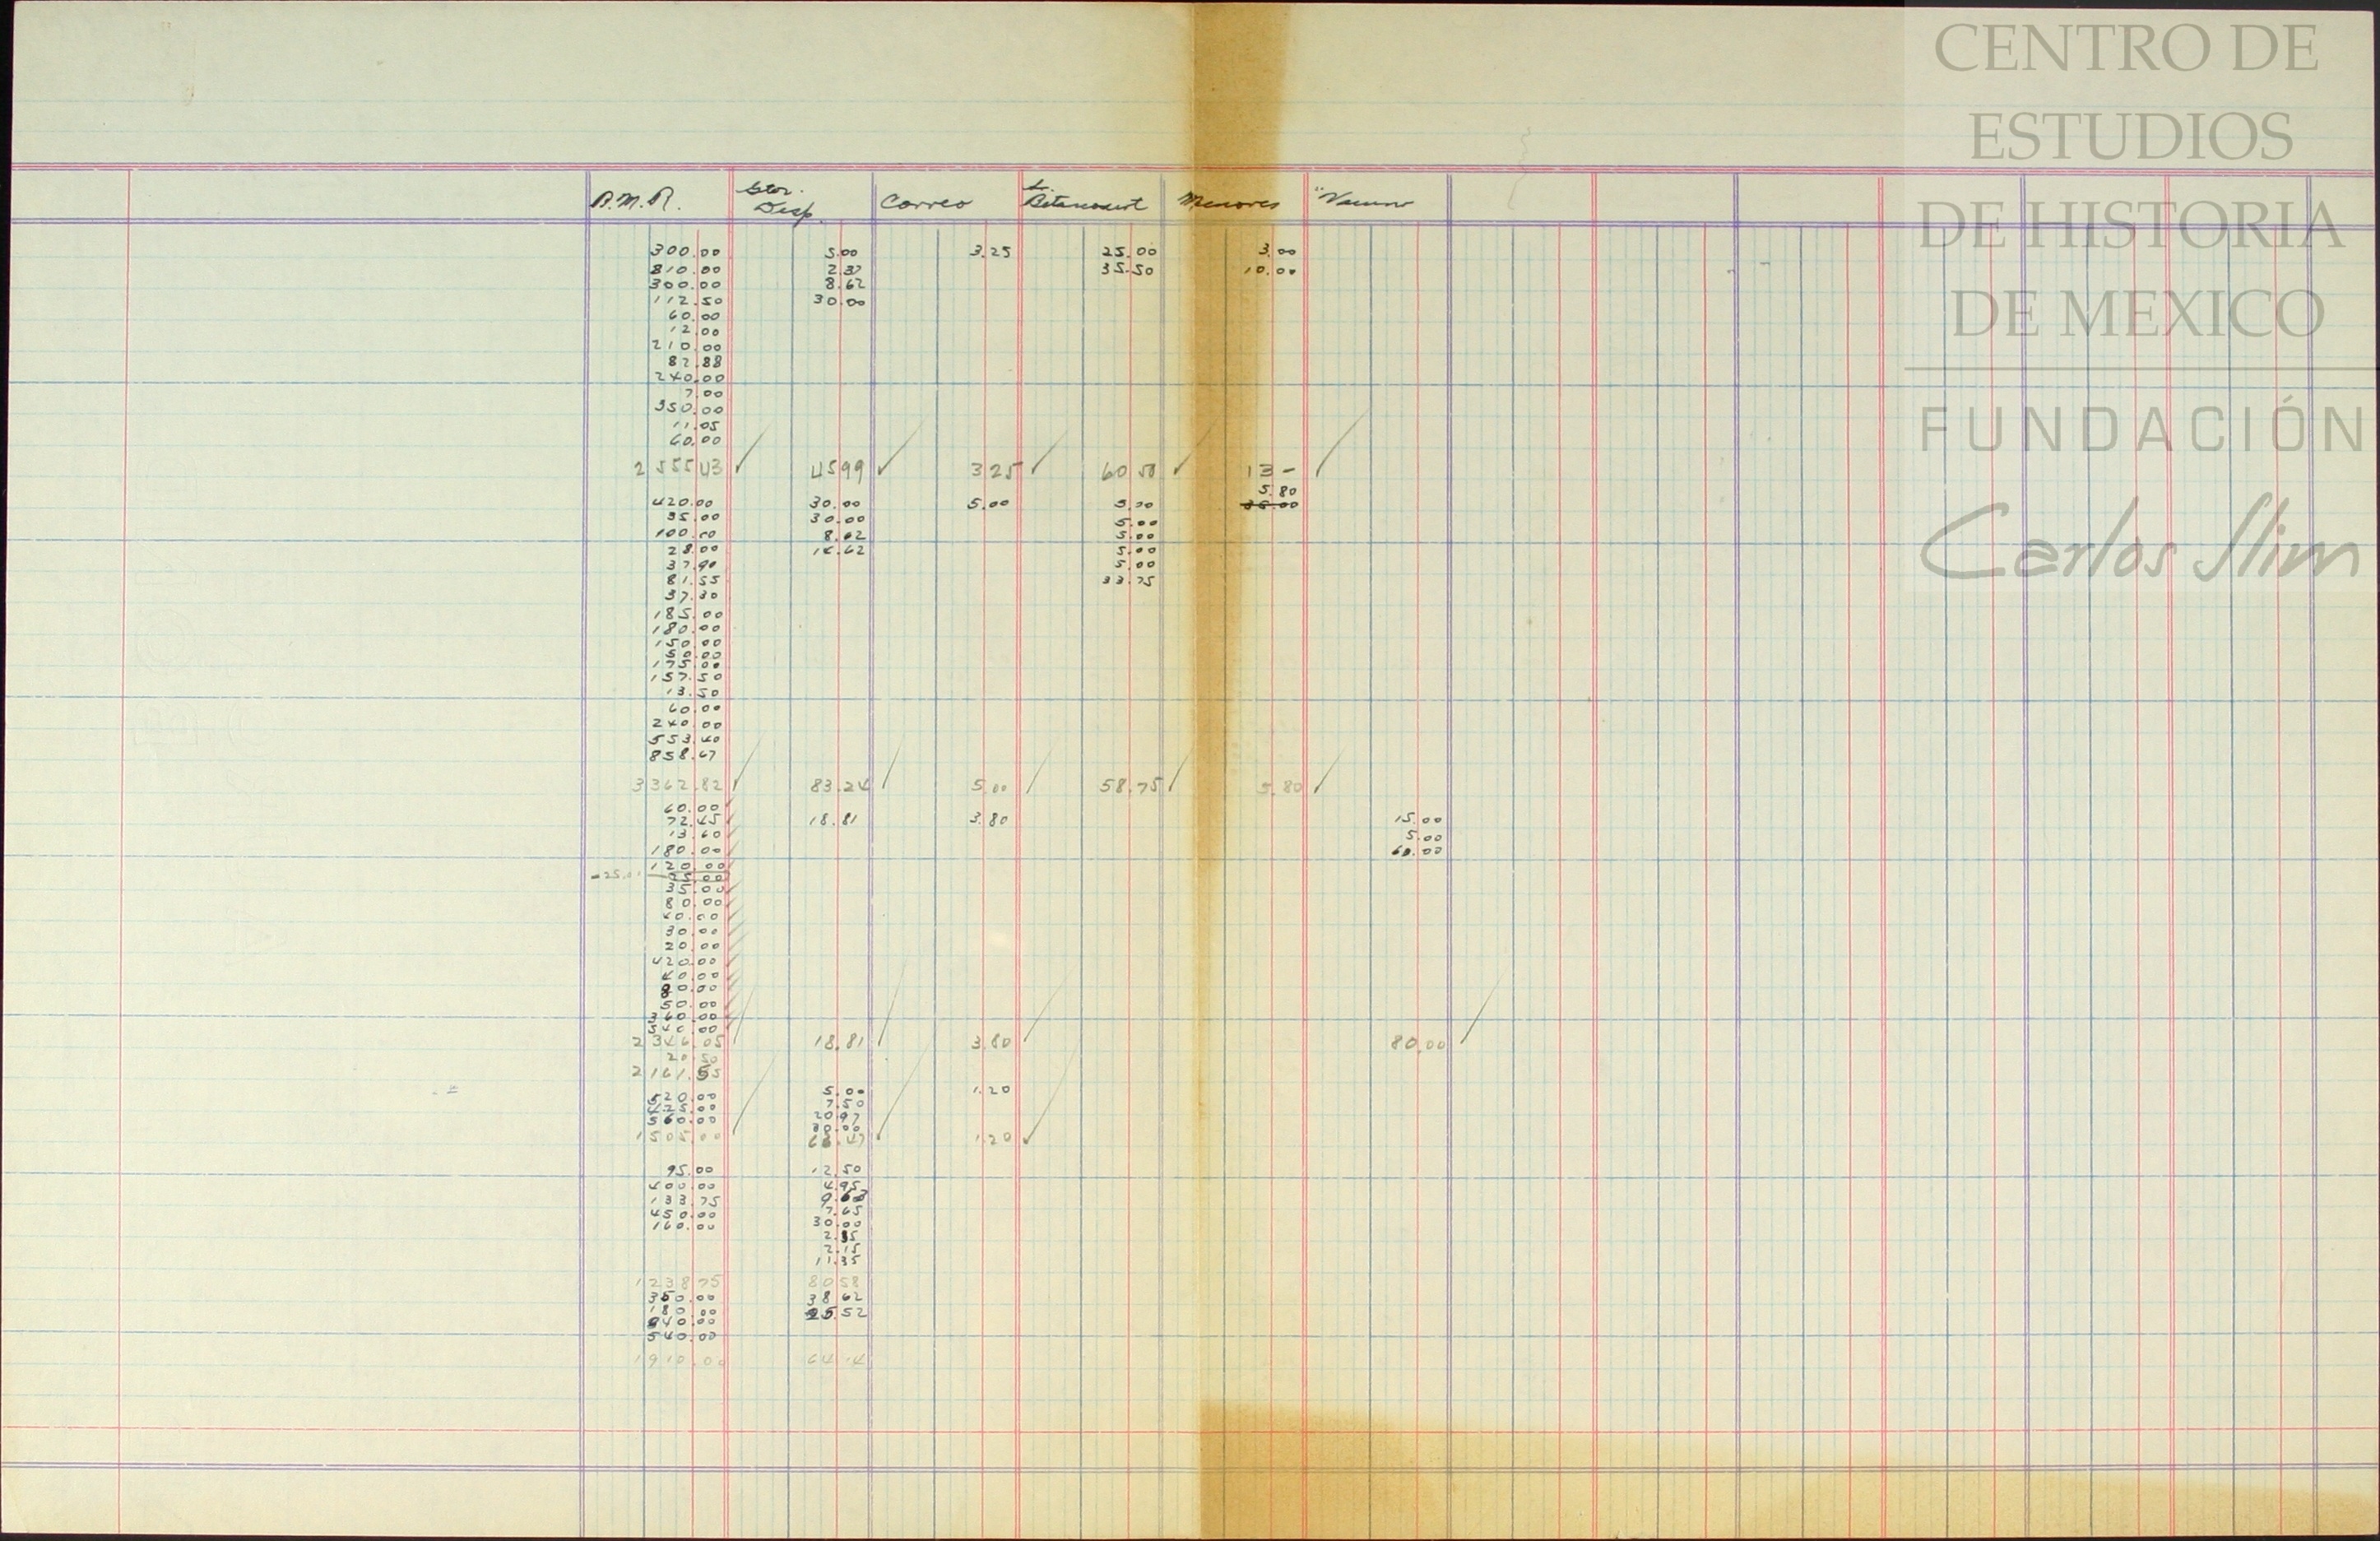 CENTRO DE
ESTUDIOS
DE HISTORIA
DE MEXICO
FUNDACIÓN
Carlos Slim
Gtos.
Sr.
Desp. Correo Betancourt Menores
300.00 5.00 3.25 25.00 3.00
810.00 2.37 35.50 10.00
300.00 8.62
112.50 30.00
60.00
12.00
210.00
82.88
240.00
7.00
350.00
11.05
60.00
2555 43 45 99 3 25 60 50 13 -
5.80
420.00 30.00 5.00 5.00 35.00
35.00 30.00 5.00
100.00 8.62 5.00
28.00 14.62 5.00
37.90 5.00
81.55 33.75
37.30
185.00
180.00
150.00
50.00
175.00
157.50
13.50
60.00
240.00
553.40
858.67
3362.82 83.24 5.00 58.75 5.80
60.00
72.45 18.81 3.80 15.00
13.60 5.00
180.00 60.00
120.00
-25.00 25.00
35.00
80.00
40.00
30.00
20.00
420.00
40.00
80.00
50.00
360.00
540.00
18.81 3.80 80.00
20.50
2161.55
520.00 5.00 1.20
425.00 7.50
560.00 20.97
30.00
1505.00 63.47 1.20
95.00 12.50
400.00 4.95
133.75 9.63
450.00 7.65
160.00 30.00
2.35
2.15
11.35
1238 75 80 58
350.00 38 62
180.00 25.52
840.00
540.00
1910.00 64 14